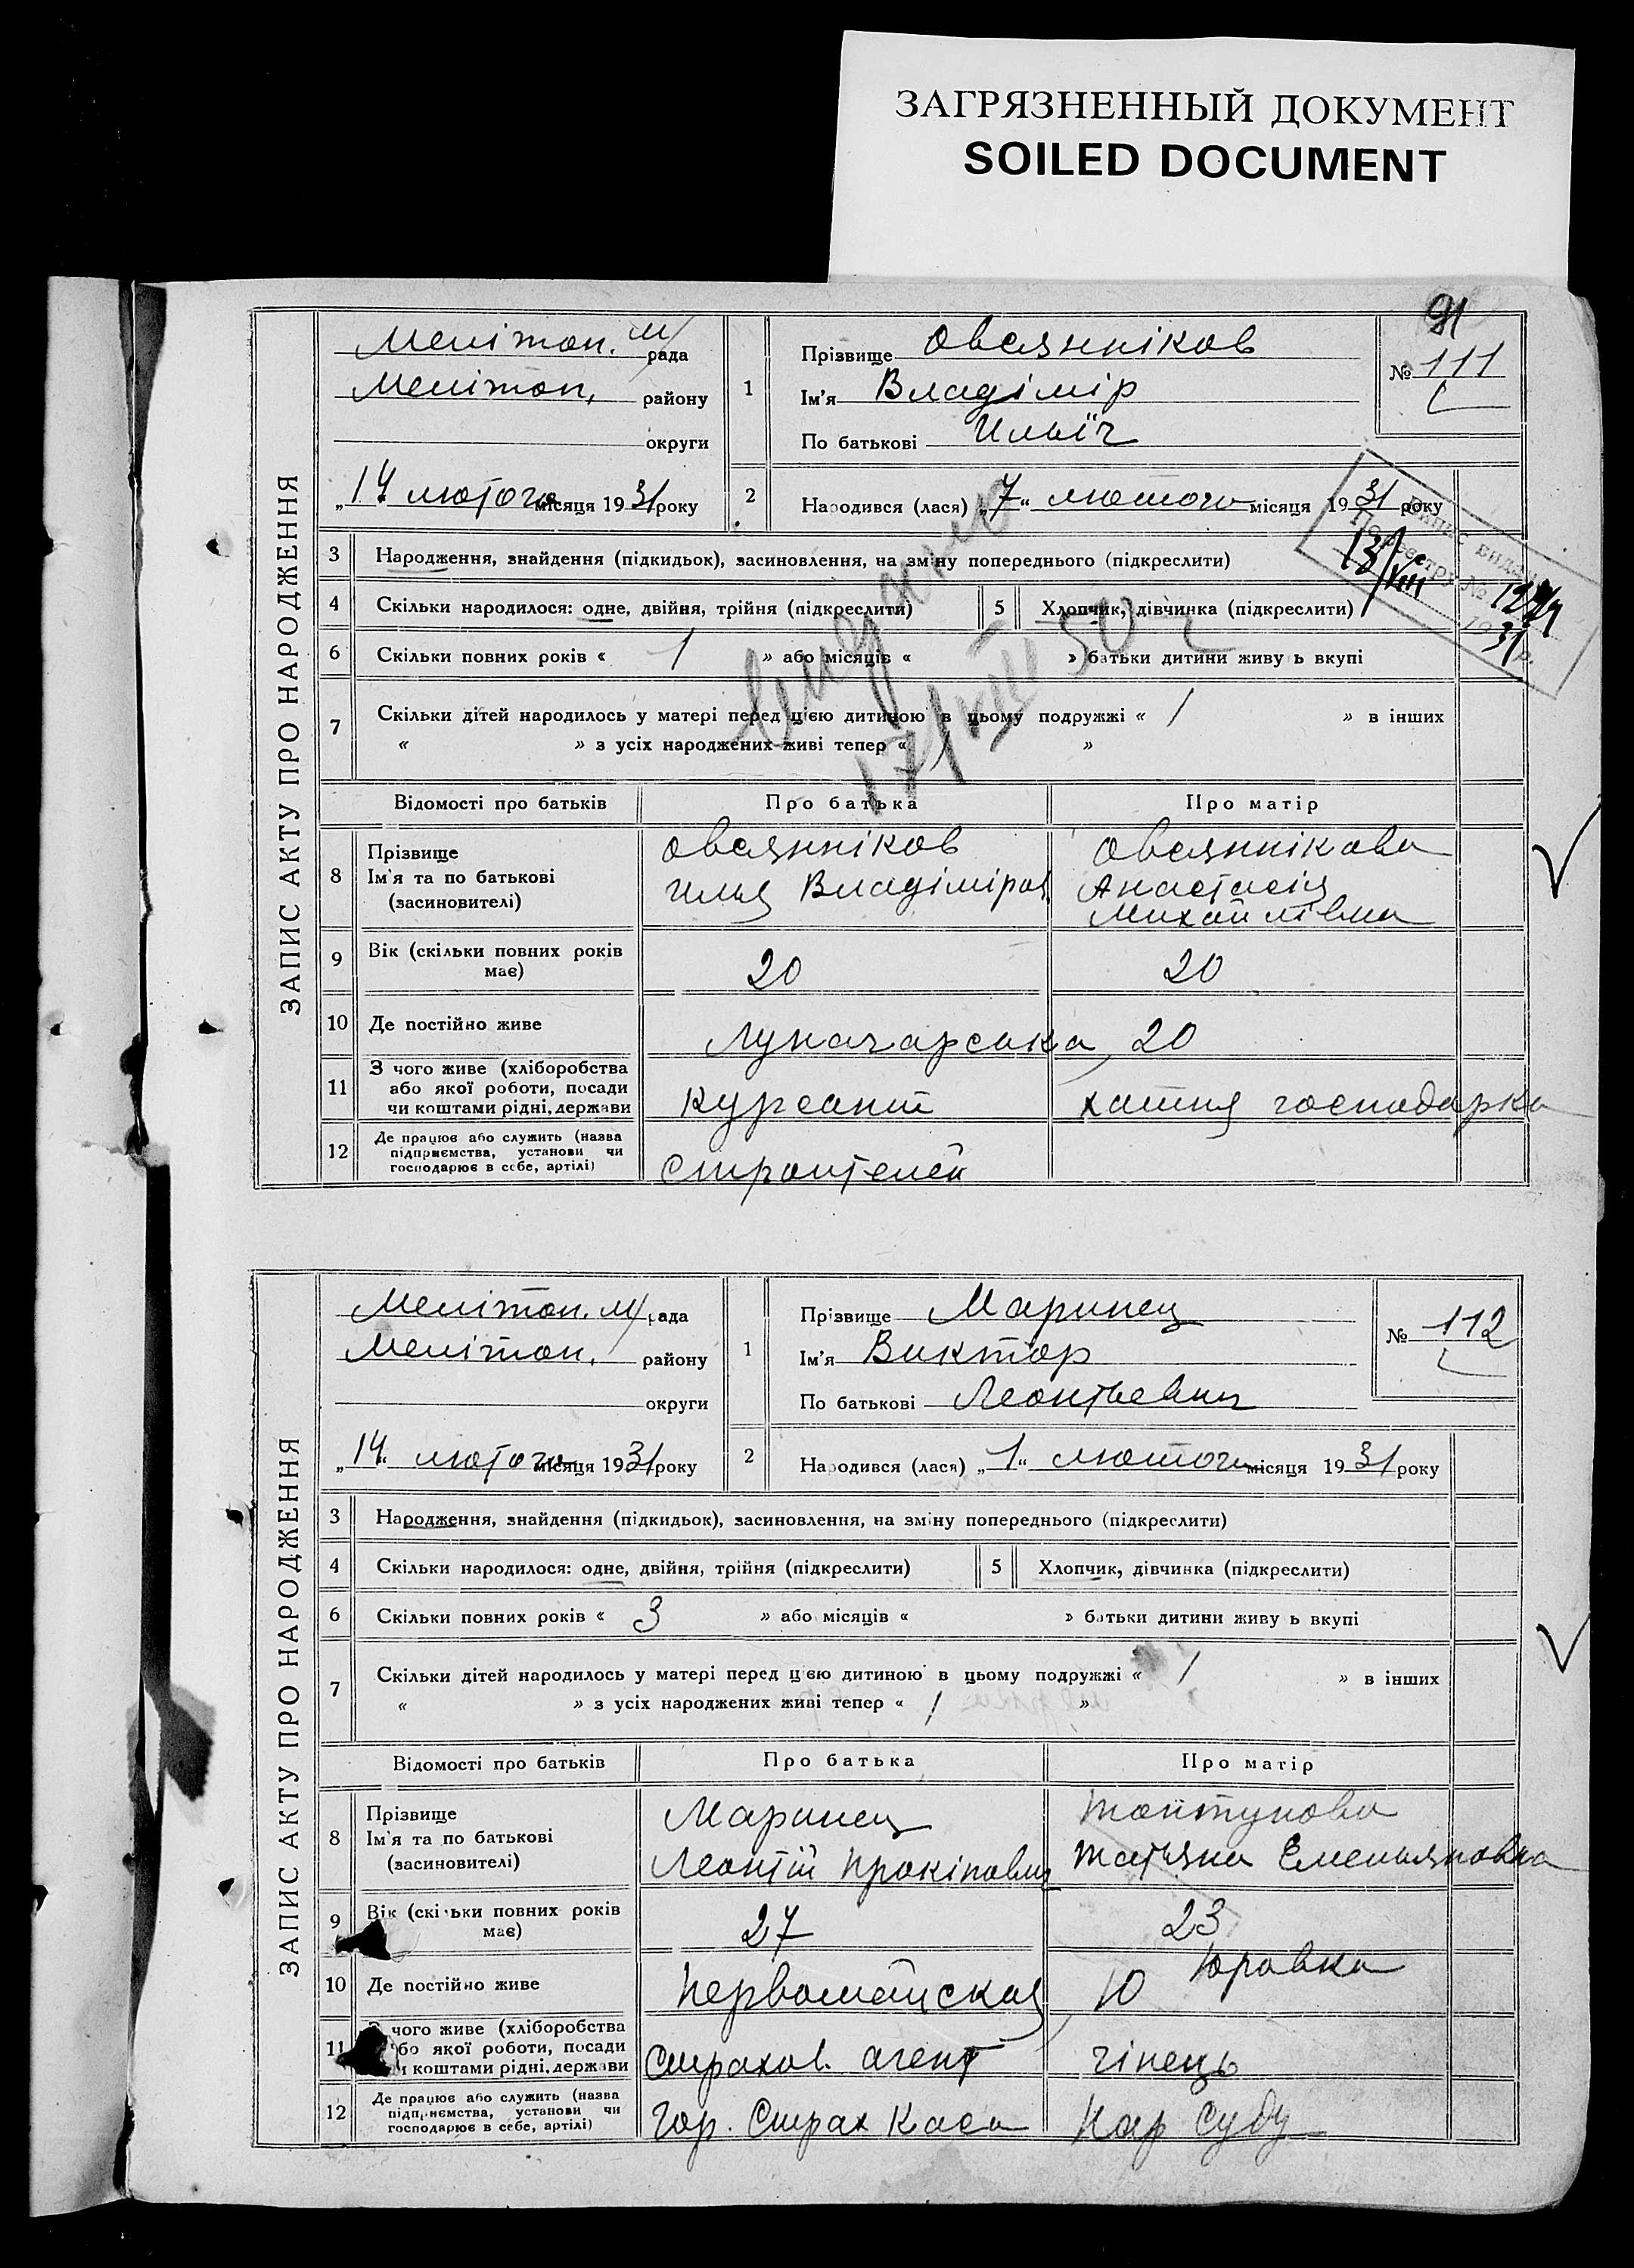 ЗАГРЯЗНЕННЫЙ ДОКУМЕНТ
SOILED DOCUMENT
91
ЗАПИС АКТУ ПРО НАРОДЖЕННЯ
Мелітоп. м/рада
Мелітоп. району
округи
„14 лютого місяця 1931 року
1 Прізвище Овсянніков
Ім'я Владімір
По батькові Ильїч
№ 111
2 Народився (лася) „7“ лютого місяця 1931 року
Випис видано
По реєстру №
13/VIII 1931 р.
видано
17/VIII 50 г
3 Народження, знайдення (підкидьок), засиновлення, на зміну попереднього (підкреслити)
4 Скільки народилося: одне, двійня, трійня (підкреслити) 5 Хлопчик, дівчинка (підкреслити)
6 Скільки повних років « 1 » або місяців « » батьки дитини живуть вкупі
7 Скільки дітей народилось у матері перед цією дитиною в цьому подружжі « 1 » в інших
« » з усіх народжених живі тепер « 1 »
Відомості про батьків Про батька Про матір
8 Прізвище Ім'я та по батькові (засновителі)
Овсянніков Овсяннікова
Илья Владіміров. Анастасія
Михайлівна
9 Вік (скільки повних років має) 20 20
10 Де постійно живе Луначарська, 20
11 З чого живе (хліборобства або якої роботи, посади чи коштами рідні, держави
курсант хатня господарка
12 Де працює або служить (назва підприємства, установи чи господарює в себе, артілі)
Строителей
ЗАПИС АКТУ ПРО НАРОДЖЕННЯ
Мелітоп. м/рада
Мелітоп. району
округи
„14“ лютого місяця 1931 року
1 Прізвище Маринец
Ім'я Виктор
По батькові Леонтьевич
№ 112
2 Народився (лася) „1“ лютого місяця 1931 року
3 Народження, знайдення (підкидьок), засиновлення, на зміну попереднього (підкреслити)
4 Скільки народилося: одне, двійня, трійня (підкреслити) 5 Хлопчик, дівчинка (підкреслити)
6 Скільки повних років « 3 » або місяців « » батьки дитини живуть вкупі
7 Скільки дітей народилось у матері перед цією дитиною в цьому подружжі « 1 » в інших
« » з усіх народжених живі тепер « 1 »
Відомості про батьків Про батька Про матір
8 Прізвище Ім'я та по батькові (засиновителі)
Маринец
Леонтій Прокіпович Татьяна Емельяновна
9 Вік (скільки повних років має) 27 23
10 Де постійно живе Первомайская, 10 Юровка
11 З чого живе (хліборобства або якої роботи, посади чи коштами рідні, держави
страхов. агент
12 Де працює або служить (назва підприємства, установи чи господарює в себе, артілі)
Гор. Страх Каса Нар Суду